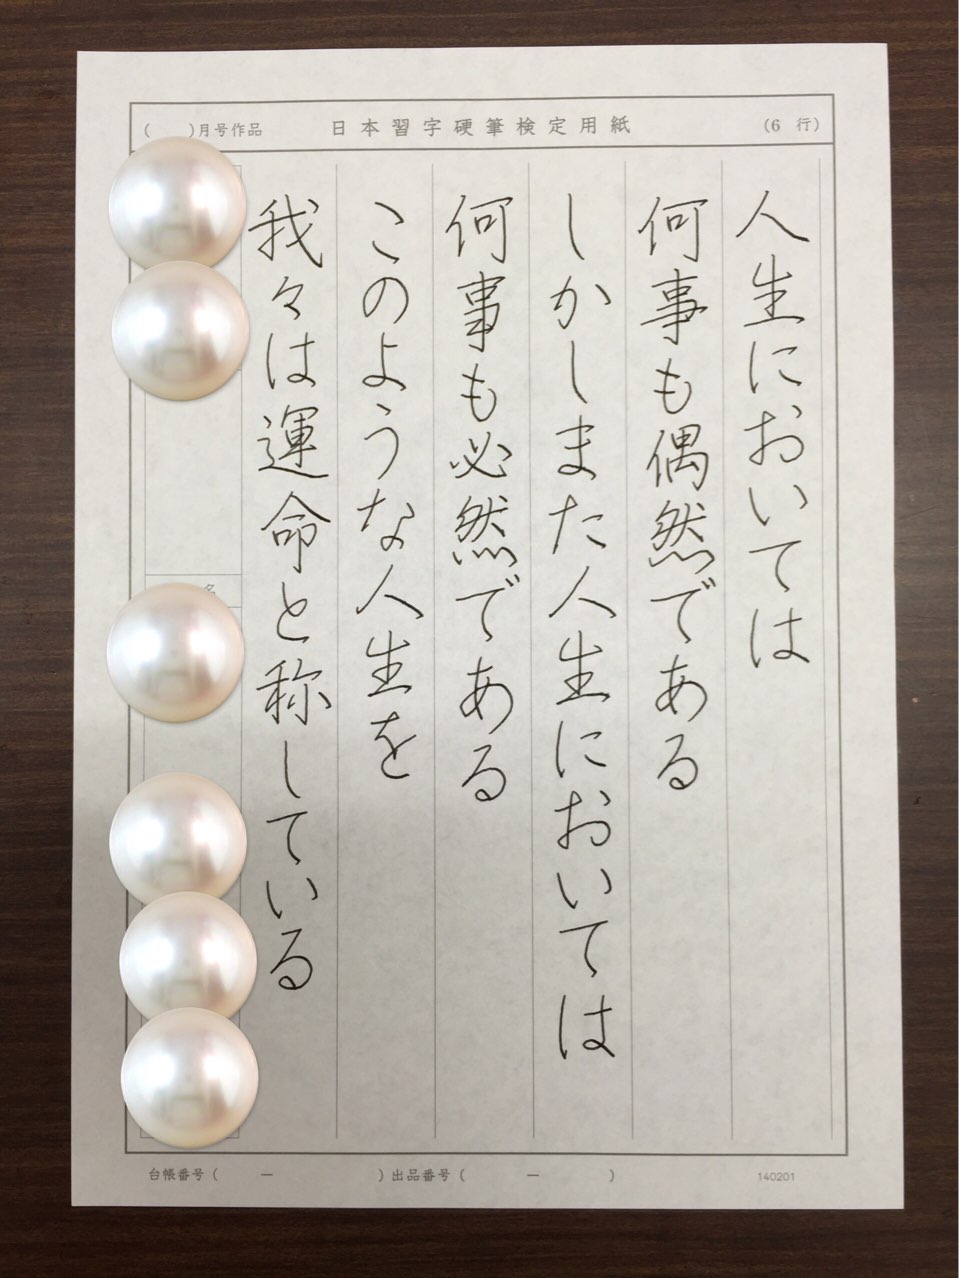 ( )月号作品 日本習字硬筆検定用紙 (6 行)
人生においては
何事も偶然である
しかしまた人生においては
何事も必然である
このような人生を
我々は運命と称している
名
台帳番号( ー )出品番号( ー ) 140201